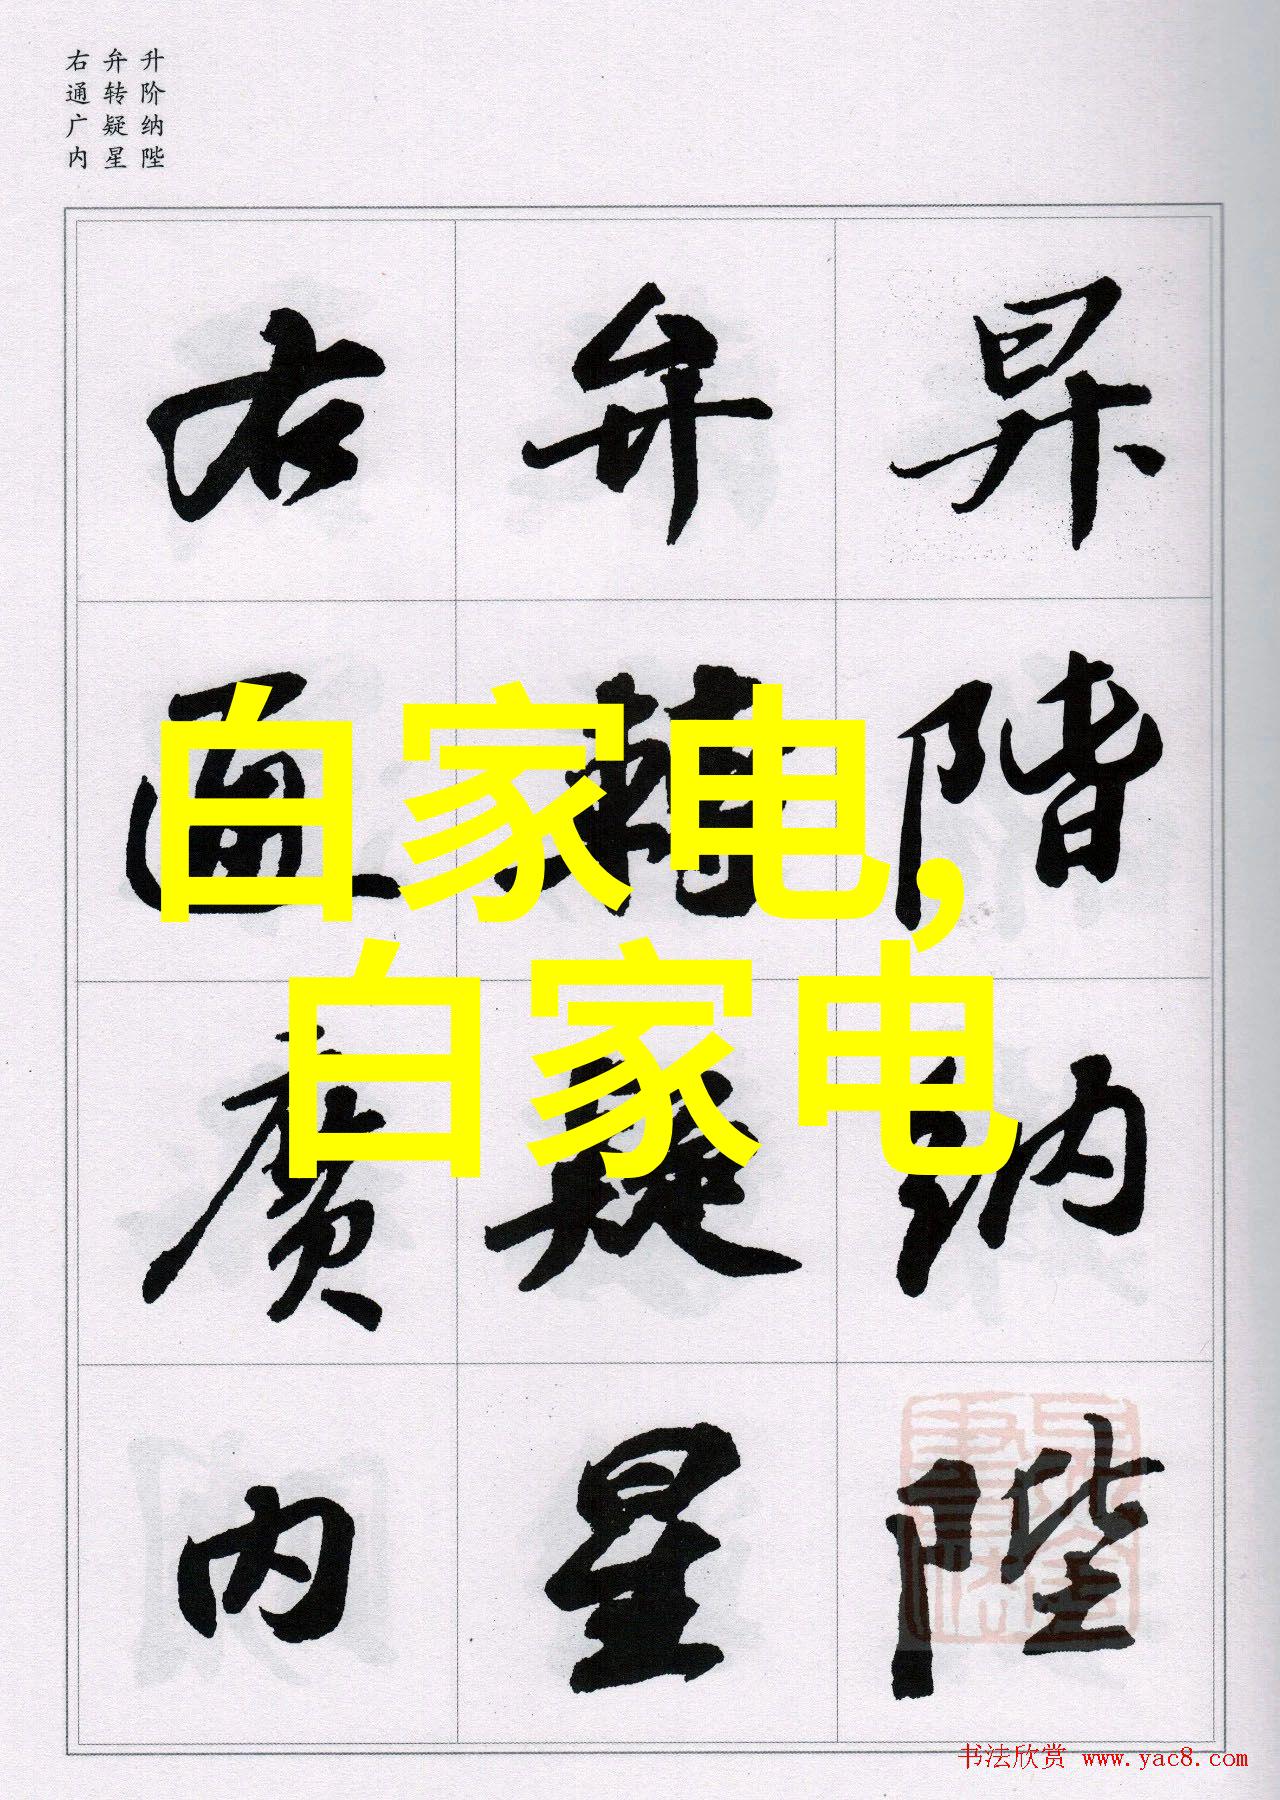 升阶纳陛
弁转疑星
右通广内
昇階纳陛
弁轉疑星
右通廣内
白家电,
白家电
书法欣赏 www.yac8.com